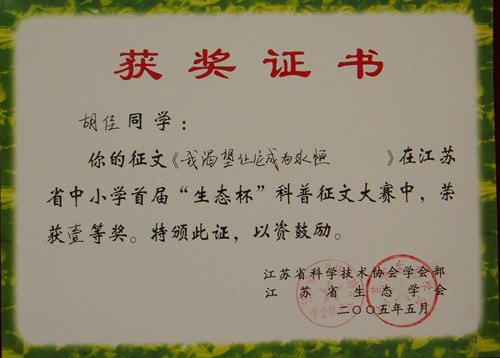 获奖证书
胡佳同学：
你的征文《我渴望让它成为永恒》在江苏
省中小学首届“生态杯”科普征文大赛中，荣
获壹等奖。特颁此证，以资鼓励。
江苏省科学技术协会学会部
江苏省生态学会
二〇〇五年五月